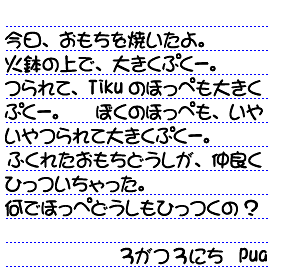 今日、おもちを焼いたよ。
火鉢の上で、大きくぷくー。
つられて、Tikuのほっぺも大きく
ぷくー。　　ぼくのほっぺも、いや
いやつられて大きくぷくー。
ふくれたおもちどうしが、仲良く
ひっついちゃった。
何でほっぺどうしもひっつくの？
3がつ3にち　Pua